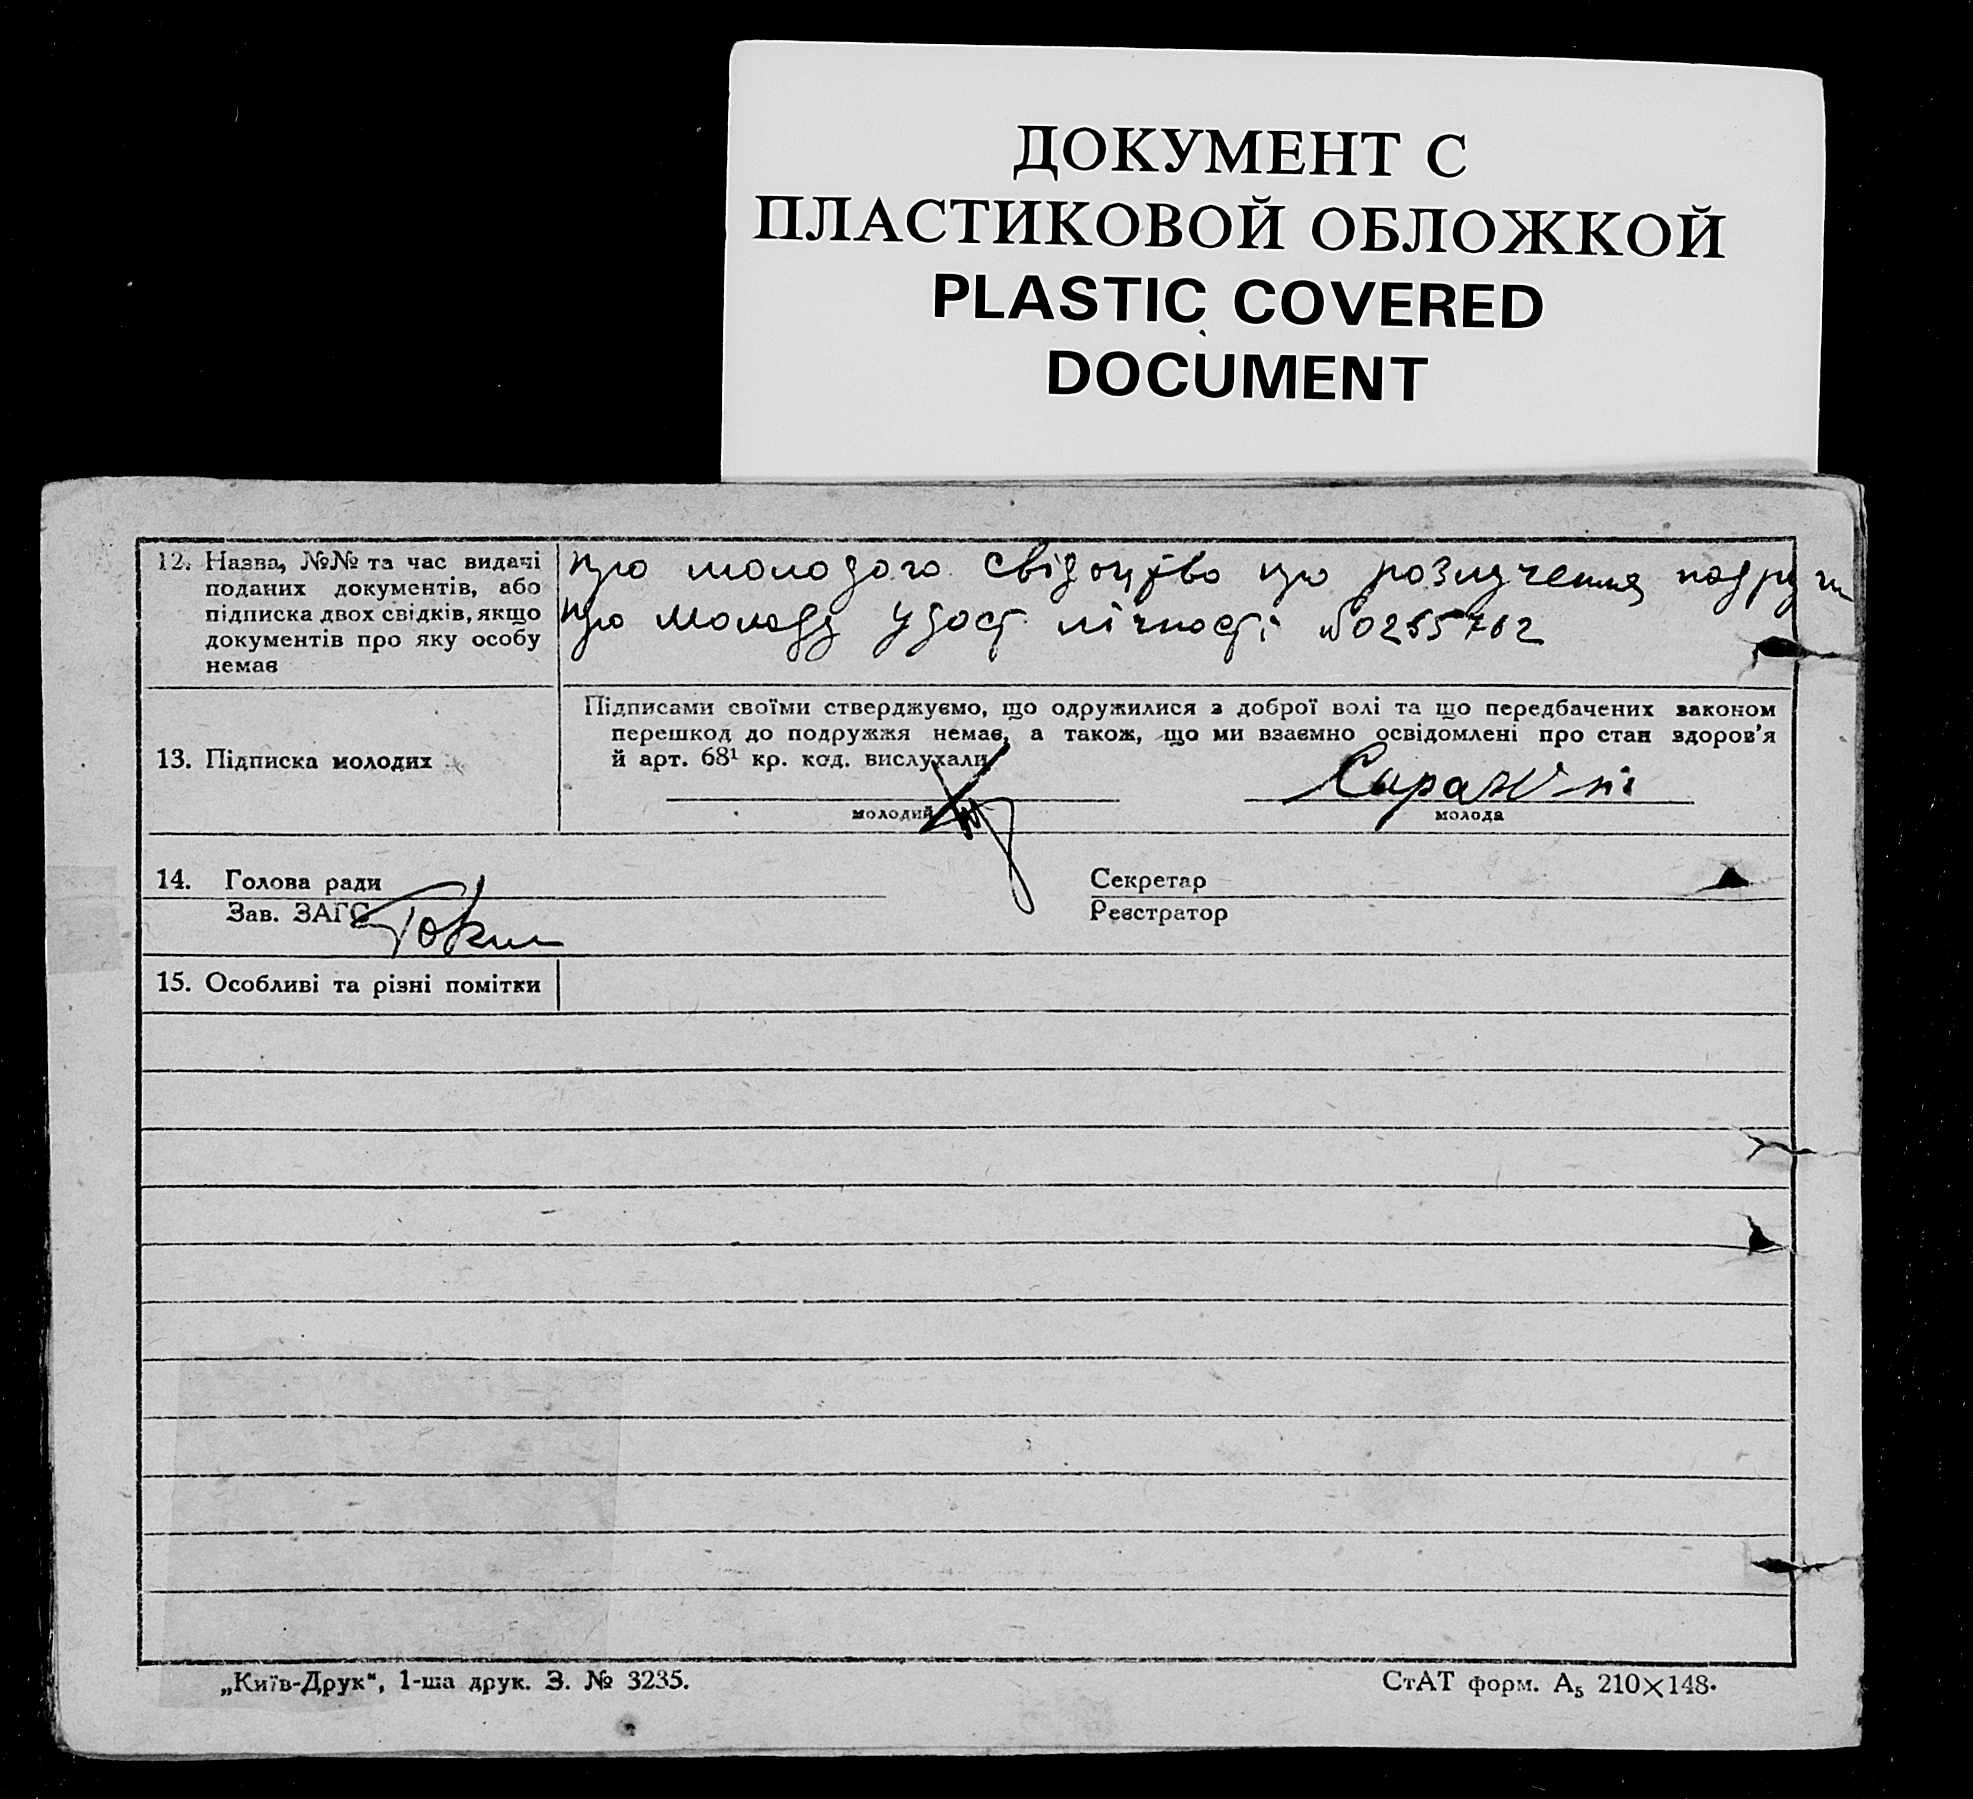 ДОКУМЕНТ С
ПЛАСТИКОВОЙ ОБЛОЖКОЙ
PLASTIC COVERED
DOCUMENT
12. Назва, №№ та час видачі
поданих документів, або
підписка двох свідків, якщо
документів про яку особу
немає
про молодого свідоцтво про розлучення
про молоду удост лічності №0255702
13. Підписка молодих
Підписами своїми стверджуємо, що одружилися з доброї волі та що передбачених законом
перешкод до подружжя немає, а також, що ми взаємно освідомлені про стан здоров'я
й арт. 68¹ кр. код. вислухали
молодий
молода
14. Голова ради
Секретар
Зав. ЗАГС
Реєстратор
15. Особливі та різні помітки
„Київ-Друк“, 1-ша друк. З. № 3235.
СтАТ форм. А₅ 210×148.